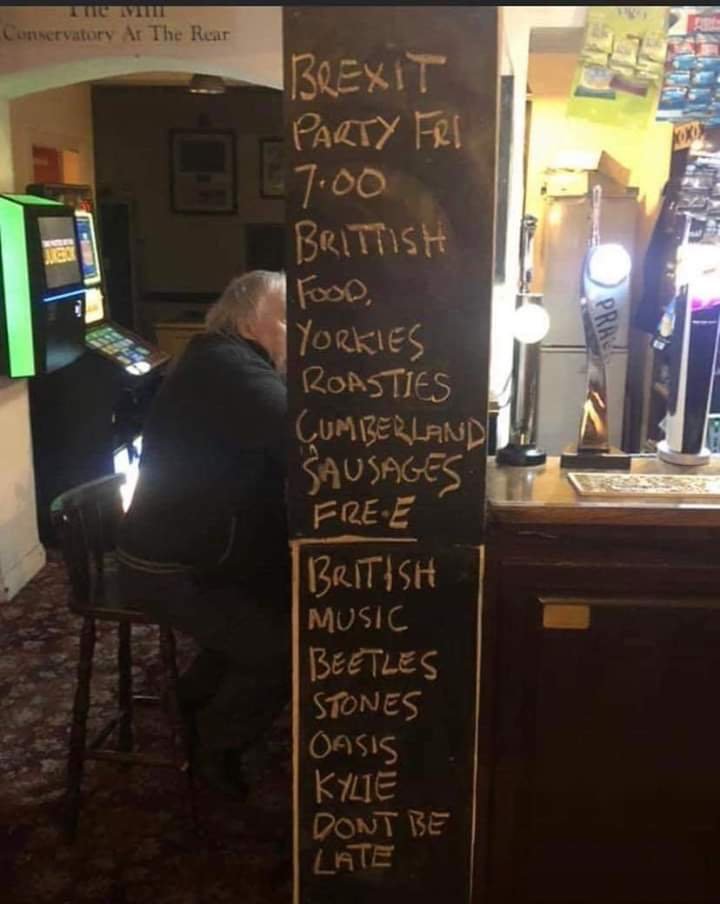 The Mill
Conservatory At The Rear
BREXIT
PARTY FRI
7.00
BRITTISH
FOOD,
YORKIES
ROASTIES
CUMBERLAND
SAUSAGES
FRE.E
BRITISH
MUSIC
BEETLES
STONES
OASIS
KYLIE
DONT BE
LATE
JUKEBOX
PRA